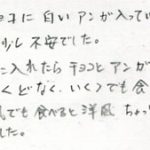 ョコに白いアンが入ってい
少し不安でした。
に入れたらチョコとアンが
くどなく、いくつでも食
でも食べると洋風ちょっ
した。